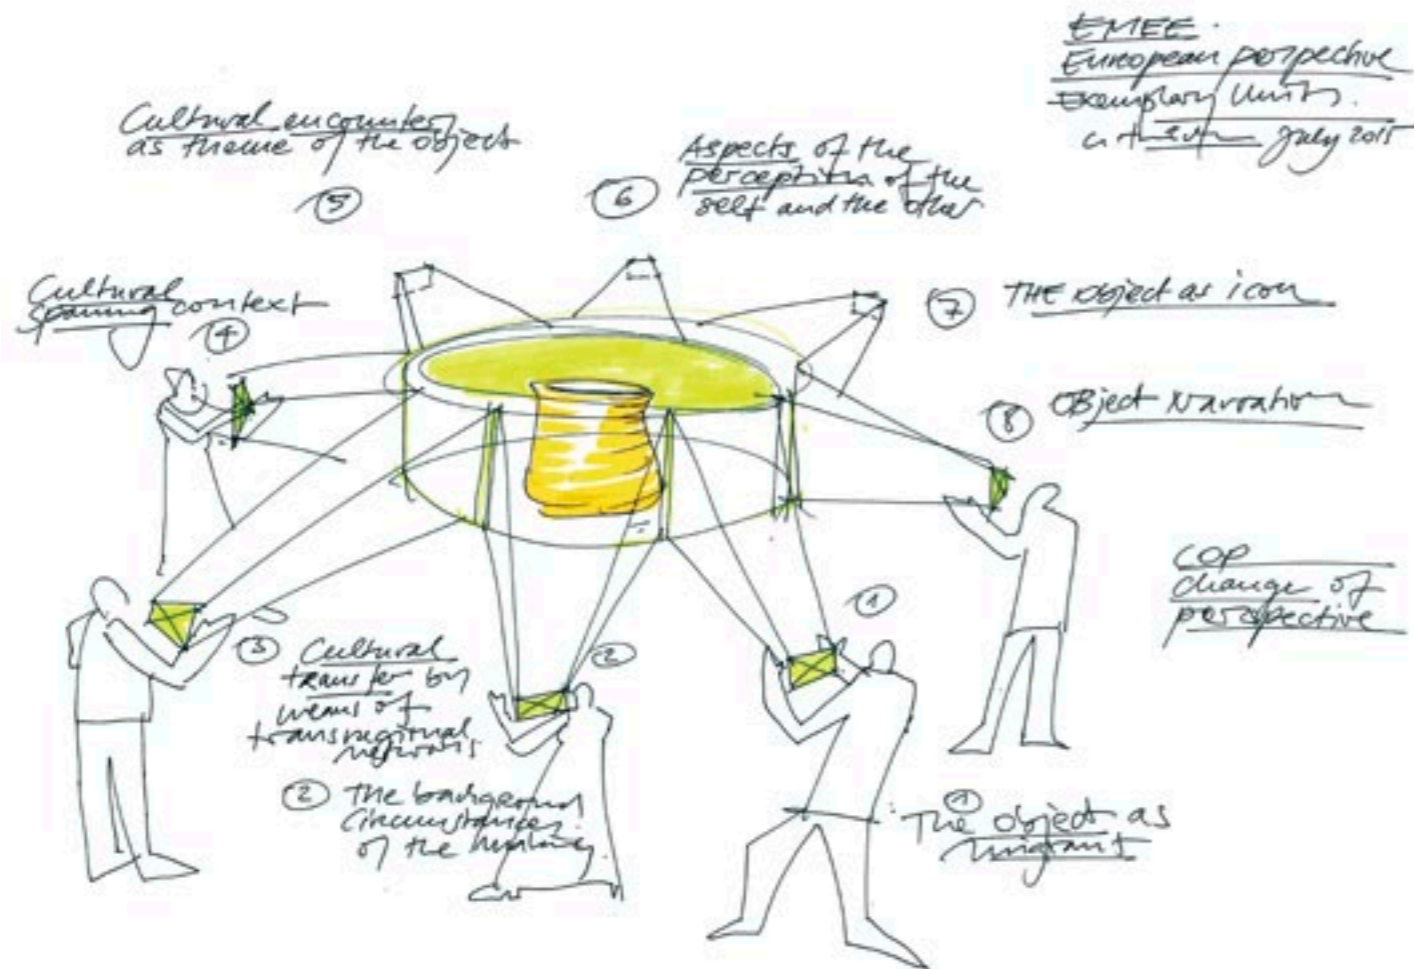 EMEE.
European perspective
Exemplary Units.
July 2015
Cultural encounter
as theme of the object
5
6
Aspects of the
perception of the
self and the other
Cultural
context
4
7
THE object as icon
8
OBject Narration
COP
change of
perspective
1
3
Cultural
transfer by
means of
transregional
networks
2
2
The background
circumstances
of the making
1
The object as
migrant